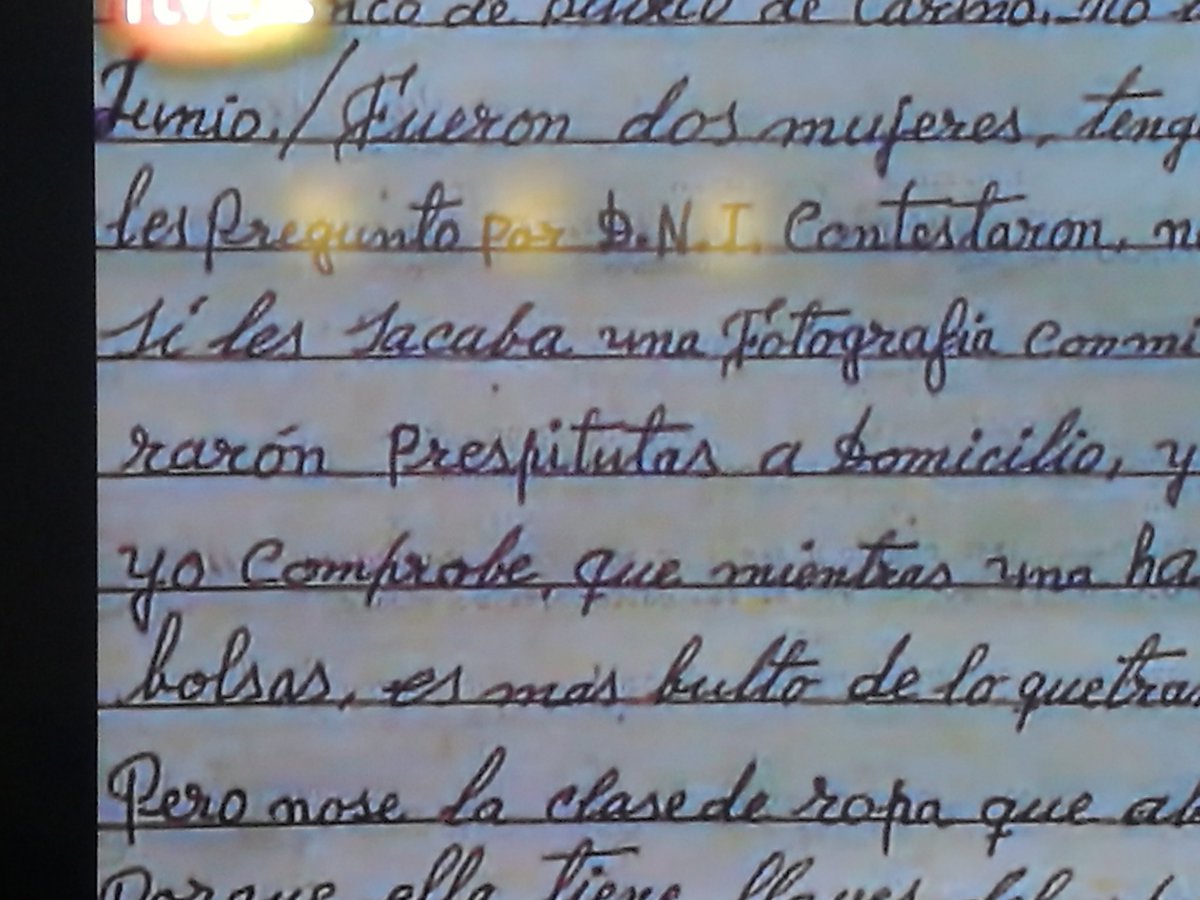 rtve
de de Carcino, no
Junio./ Fueron dos mujeres, teng
les Pregunto por D.N.I. Contestaron, n
si les sacaba una Fótografia conmi
rarón Prespitutas a Domicilio, y
yo Comprobe, que mientras una ha
bolsas, es mas bulto de lo quetra
Pero nose la clasede ropa que ab
Porque ella tiene llaves del